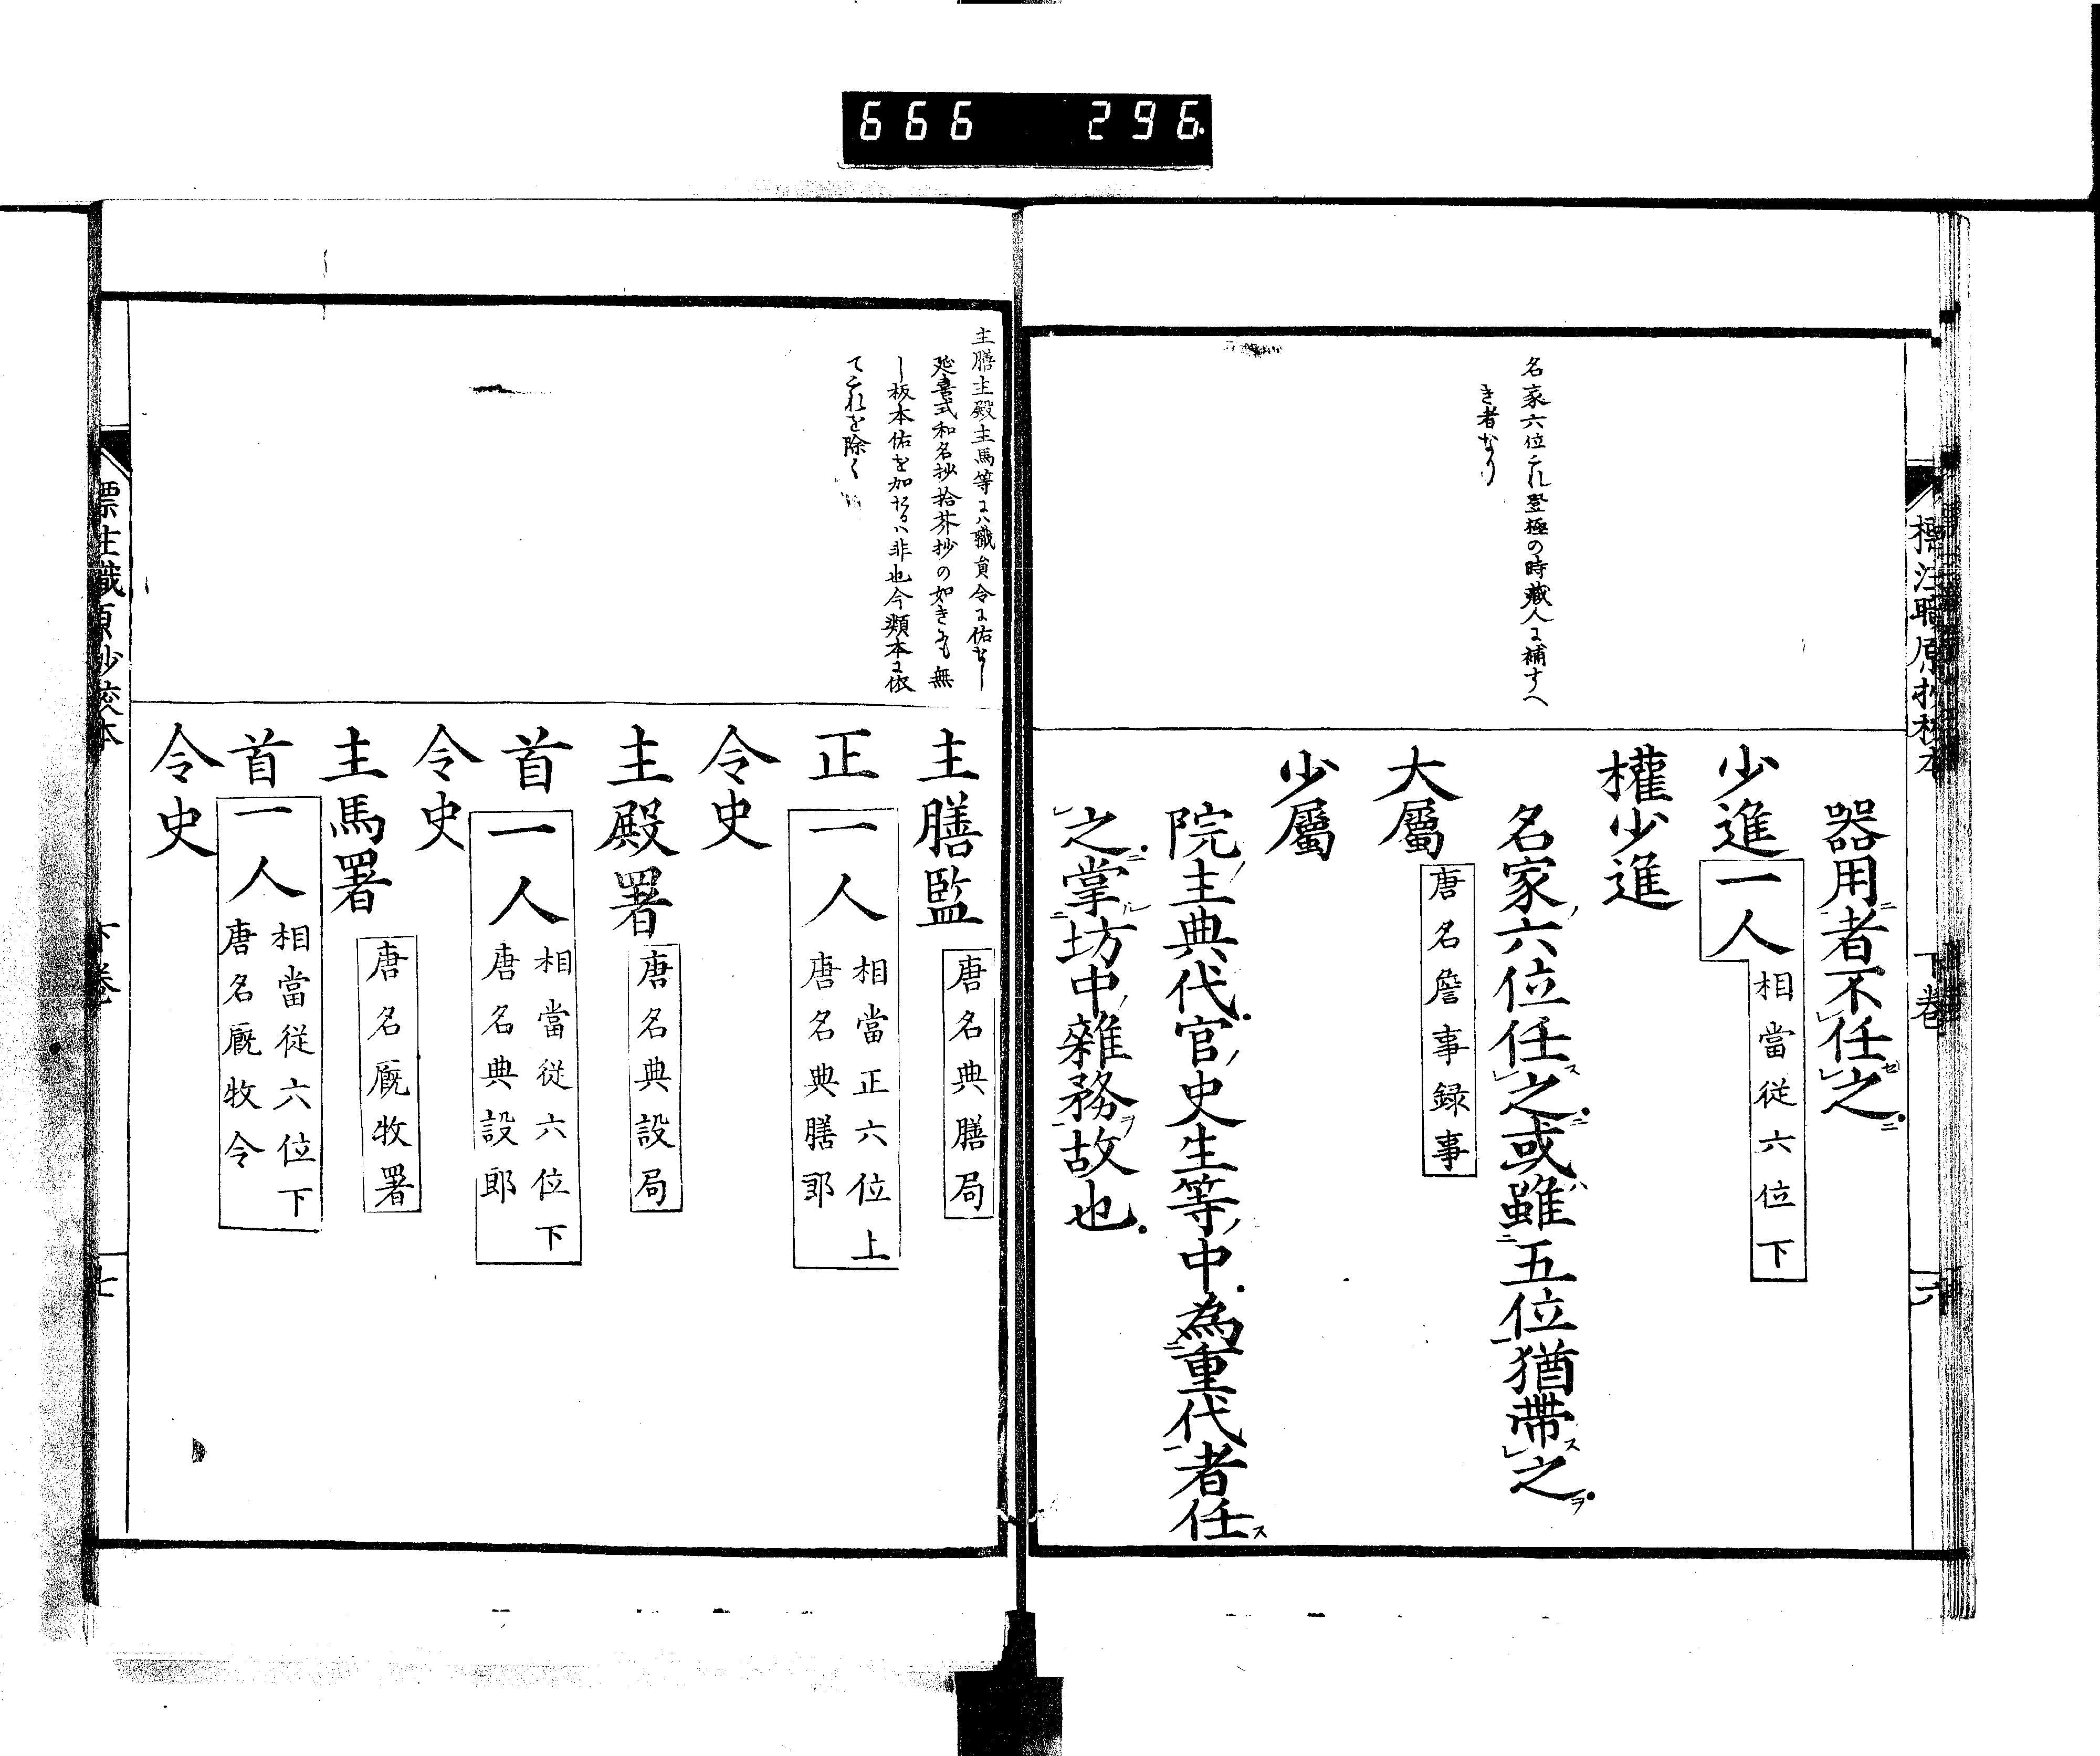 666 296
標注職原抄校本 下卷 六
名家六位これ登極の時藏人に補すへ
き者なり
器用者不任之
少進 一人 相當従六位下
權少進
名家六位任之或雖五位猶帶之
大屬 唐名詹事録事
少屬
院主典代官史生等中為重代者任
之掌坊中雜務故也
主膳主殿主馬等には職員令に佑なし
延喜式和名抄拾芥抄の如きも無
し板本佑を加たるは非也今類本に依
てこれを除く
主膳監 唐名典膳局
正 一人 相當正六位上
唐名典膳郎
令史
主殿署 唐名典設局
首 一人 相當従六位下
唐名典設郎
令史
主馬署 唐名厩牧署
首 一人 相當従六位下
唐名厩牧令
令史
標注職原抄校本 下卷 七